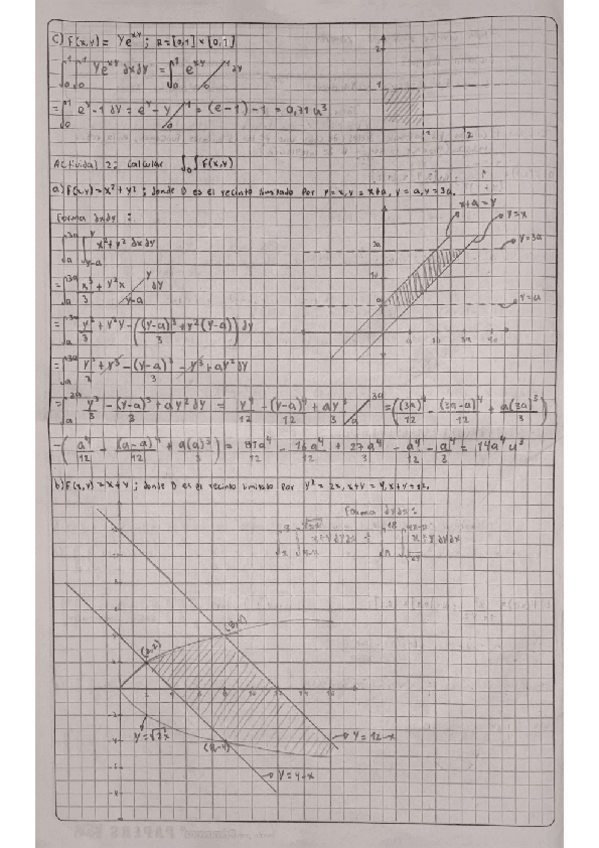 c) F(x,y) = Ye^xy; R=[0,1] × [0,1]
∫₀¹∫₀¹ Ye^xy dxdy = ∫₀¹ e^xy dy
= ∫₀¹ e^y - 1 dy = e^y - y = (e-1) - 1 = 0,71 u³
1
2
Actividad 2: Calcular ∫∫_D F(x,y)
a) F(x,y) = x² + y²; donde D es el recinto limitado por y=x, y = x+a, y = a, y = 3a.
x+a = y
y=x
y=3a
y=a
Forma dxdy:
∫ₐ³ᵃ∫ x² + y² dxdy
y-a
= ∫ₐ³ᵃ x³/3 + y²x dy
y-a
= ∫ₐ³ᵃ y³/3 + y²y - ((y-a)³/3 + y²(y-a)) dy
= ∫ₐ³ᵃ y³/3 + y³ - (y-a)³/3 - y³ + ay² dy
= ∫ₐ³ᵃ y³/3 - (y-a)³/3 + ay² dy = y⁴/12 - (y-a)⁴/12 + ay³/3 = ((3a)⁴/12 - (3a-a)⁴/12 + a(3a)³/3)
-(a⁴/12 - (a-a)⁴/12 + a(a)³/3) = 81a⁴/12 - 16a⁴/12 + 27a⁴/3 - a⁴/12 - a⁴/3 = 14a⁴ u³
b) F(x,y) = x+y; donde D es el recinto limitado por y² = 2x, x+y = 4, x+y=12.
Forma dydx:
(2,2)
(8,4)
(8,-4)
y=√2x
y=12-x
y=4-x